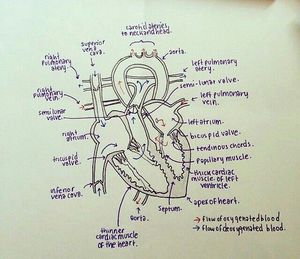 carotid arteries
to neck and head.
superior
vena
cava.
aorta.
right
pulmonary
artery.
left pulmonary
artery.
semi-lunar valve.
right
pulmonary
vein.
left pulmonary
vein.
semi lunar
valve.
left atrium.
right
atrium.
bicuspid valve.
tendinous chords.
tricuspid
valve.
papillary muscle.
thick cardiac
muscle of left
ventricle.
inferior
vena cava.
apex of heart.
septum.
aorta.
thinner
cardiac muscle
of the heart.
→ flow of oxygenated blood
→ flow of deoxygenated blood.